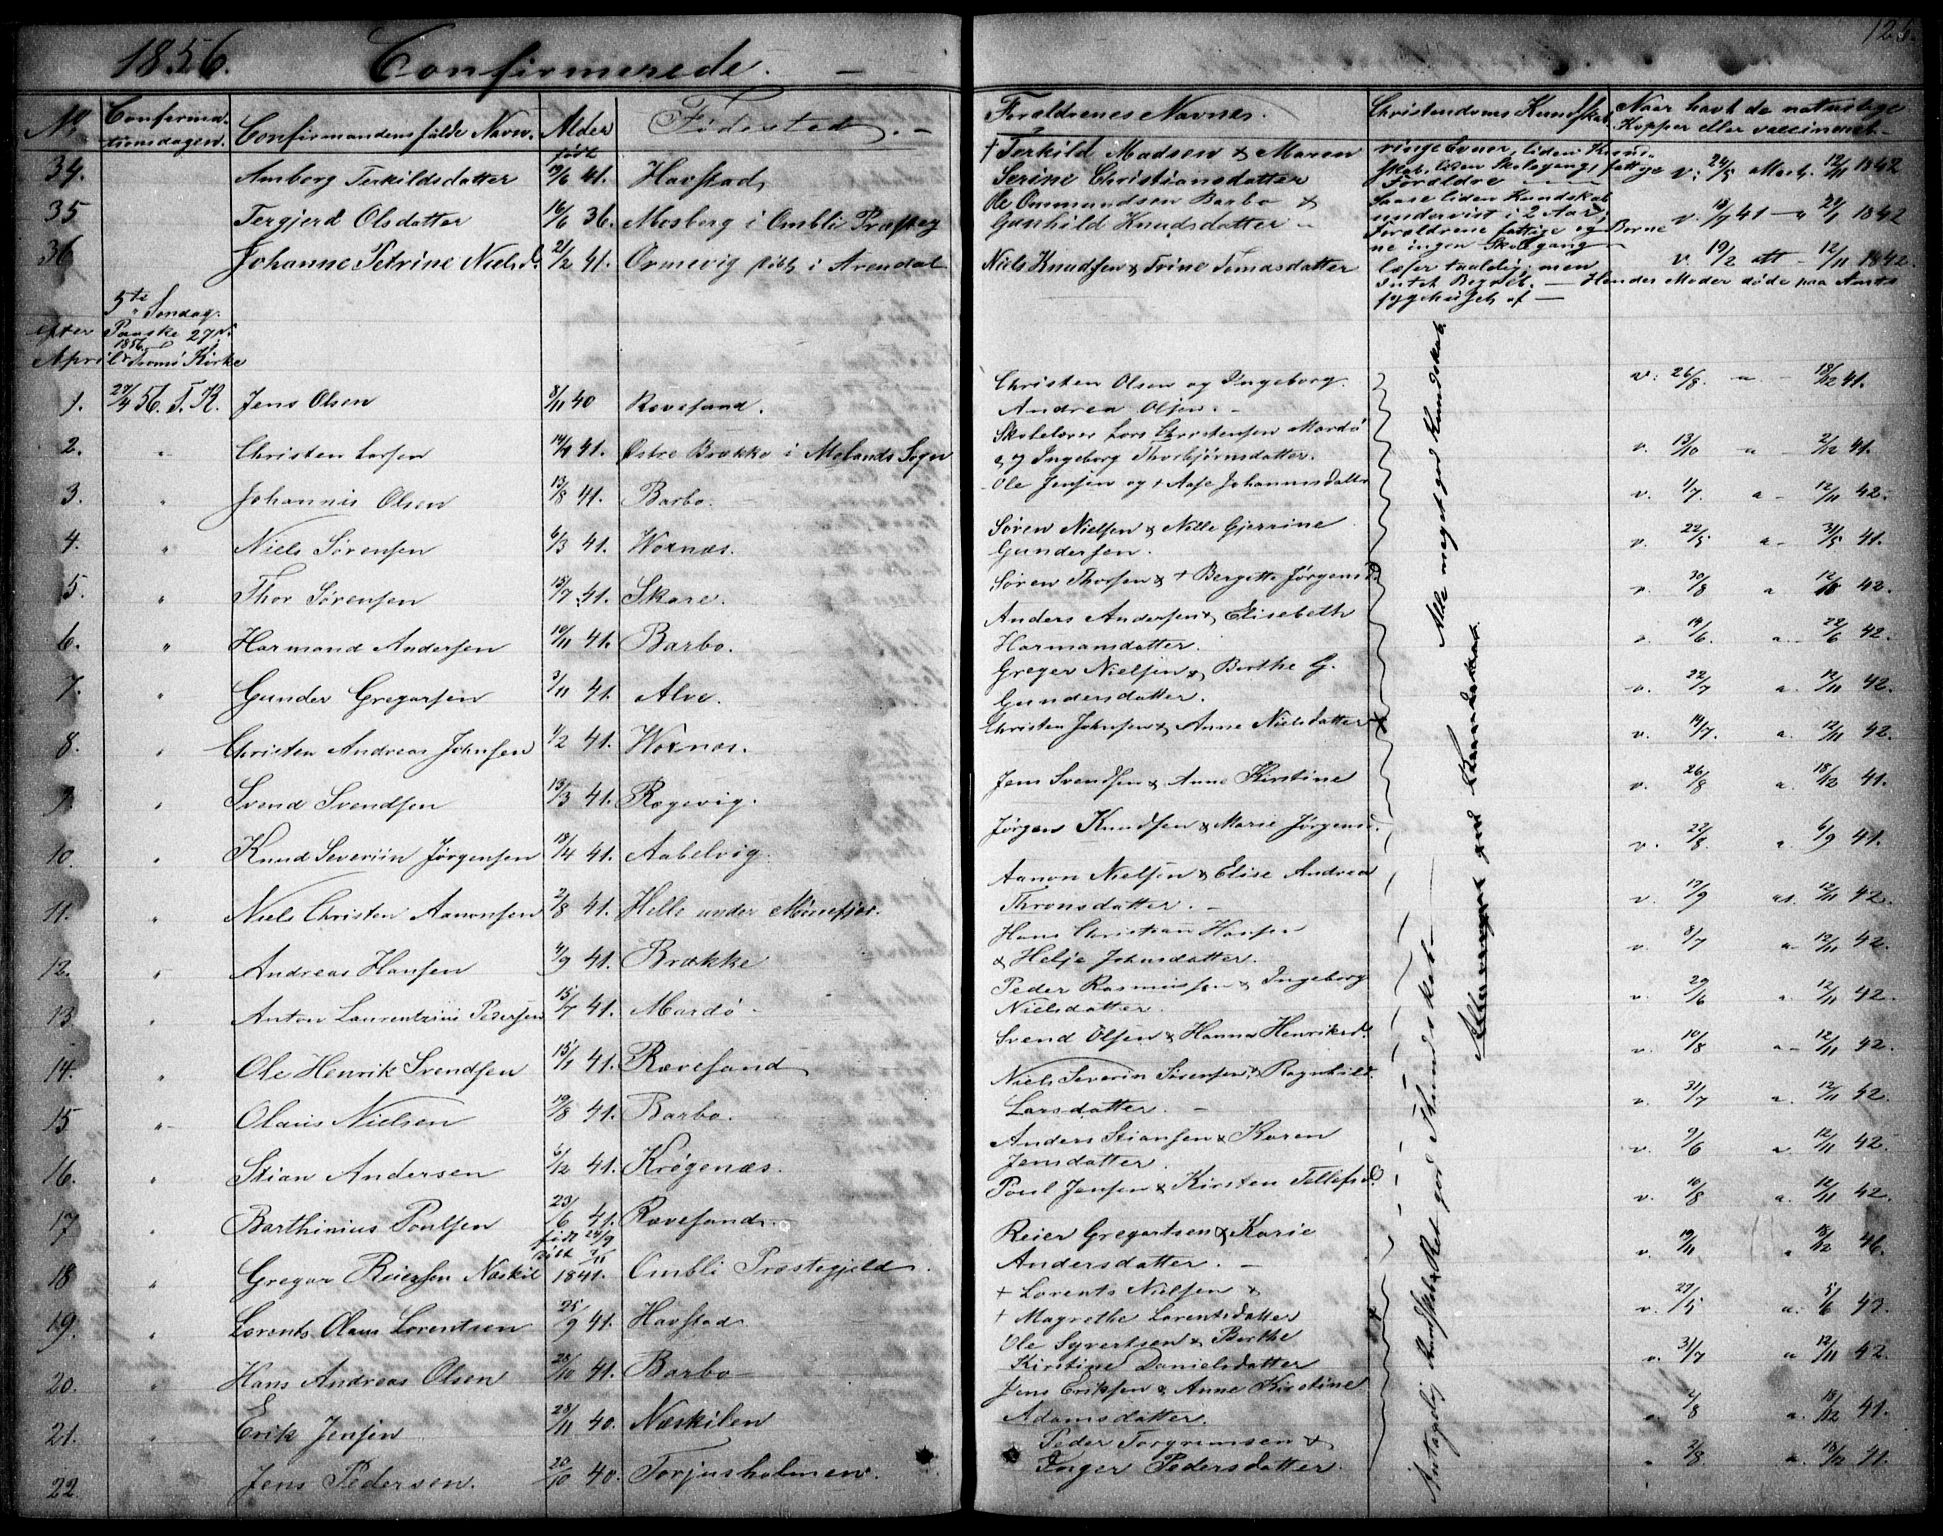 1856. Confirmerede. 125.
No Confirmationsdagen. Confirmandens fulde Navn. Alder Fødested. Forældrenes Navne. Christendoms Kundskab. Naar havt de naturlige Kopper eller vaccineret.
født
34. Amborg Terkildsdatter 19/6 41. Havstad † Terkild Madsen & Maren
Serine Christiansdatter
ringe Evner, liden Kund-
skab, liden Skolegang, fattige
Forældre
v. 24/5 12/11 1842
35 Tergjerd Olsdatter 16/6 36. Mosberg i Ombli Præsteg
Ole Ommundsen Barbo &
Gunhild Knudsdatter
liden Kundskab
undervist i 2 Aar;
Forældrene fattige og Børne
ne ingen Skolgang
v. 18/7 41 — a 24/1 1842
36 Johanne Petrine Nielsd. 21/2 41. Ormevig født i Arendal Niels Knudsen & Trine Tomasdatter
læser taalelig; men
Intet Begreb. — Hendes Moder døde paa Amts
sygehuset af —
v. 19/2 att — 12/11 1842.
5te Søndag
efter Paaske 27.
April 1856 Tromø Kirke
1. 27/4 56. T. K. Jens Olsen 8/11 40 Rævesand. Christen Olsen og Ingeborg
Andrea Olsen. v: 26/8 a — 18/12 41.
2. " Christen Larsen 14/4 41. Østre Brække i Molands Sogn Skolelærer Lars Christensen Mardø
og Ingeborg Thorbjørnsdatter. v. 13/10 a — 2/12 41.
3. " Johannis Olsen 13/8 41. Barbo. Ole Jensen og † Aase Johannisdatter v. 1/7. a — 12/11 42.
4. " Niels Sørensen 6/3 41. Woxnæs. Søren Nielsen & Nille Gjerrine
Gundersen. v. 22/5 a — 31/5 41.
5. " Thor Sørensen 15/7 41. Skare. Søren Thorsen & † Bergitte Jørgensd. v. 30/8 a 12/10 42.
6. " Harmand Andersen 10/11 41. Barbo. Anders Andersen & Elisebeth
Harmansdatter. v. 14/6. a — 22/6 42.
7. " Gunder Gregersen 3/11 41. Alve. Greger Nielsen & Berthe G.
Gundersdatter. v. 22/7 a. 12/11 42.
8. " Christen Andreas Johnsen 1/2 41. Woxnæs. Christen Johnsen & Anne Nielsdatter v. 14/7. a. 12/11 42.
9. " Svend Svendsen 13/3 41. Rægevig. Jens Svendsen & Anne Kirstine v. 26/8 a. 18/12 41.
10. " Knud Severiin Jørgensen 18/4 41. Aabelvig. Jørgen Knudsen & Marie Jørgensd. v. 22/8 a. 6/9 41.
11. " Niels Christen Aanonsen 2/8 41. Helle under Mønefjær. Aanon Nielsen & Elise Andrea
Thronsdatter. v. 17/9 a. 12/11 42.
12. " Andreas Hansen 4/9 41. Brække Hans Christian Hansen
& Helje Johnsdatter. v. 8/7 a — 12/11 42.
13. " Anton Laurentzius Pedersen 15/7 41. Mardø Peder Rasmussen & Ingeborg
Nielsdatter. v. 29/6 a. 12/11 42.
14. " Ole Henrik Svendsen 15/1 41. Rævesand Svend Olsen & Hanna Henriksd. v. 10/8 a — 12/11 42.
15 " Olaus Nielsen 19/8 41. Barbo. Niels Severin Sørensen & Ragnhild
Larsdatter. v. 31/7 a. 12/11 42.
16. " Stian Andersen 6/12 41. Krøgenæs. Anders Stiansen & Karen
Jensdatter. v. 9/6 a. 12/11 42.
17 " Barthinius Poulsen 23/6 41. Rævesand. Poul Jensen & Kirsten Tellefsd. v. 10/8 a. 12/11 42.
18 " Gregar Reiersen Næskil født 24/9 døbt 7/11 1841. Ombli Præstegjeld. Reier Gregartsen & Karie
Andersdatter. v. 19/11 a 18/12 46.
19. " Lorents Olaus Lorentsen 25/9 41. Havstad † Lorents Nielsen &
† Magrethe Lorentsdatter v. 27/5 a. 5/6 42.
20. " Hans Andreas Olsen 28/10 41. Barbo Ole Syvertsen & Berthe
Kirstine Danielsdatter v. 31/7 a 12/11 42.
21. " Erik Jensen 28/11 40. Næskilen Jens Eriksen & Anne Kirstine
Adamsdatter. v. 4/8 a. 18/12 41.
22. Jens Pedersen. 20/10 40. Torjusholmen. Peder Torgrimsen &
Inger Pedersdatter. " 2/8 a. 18/12 41.
Alle meget god Kundskab.
Antagelig Kundskab & Ret god Flindskab